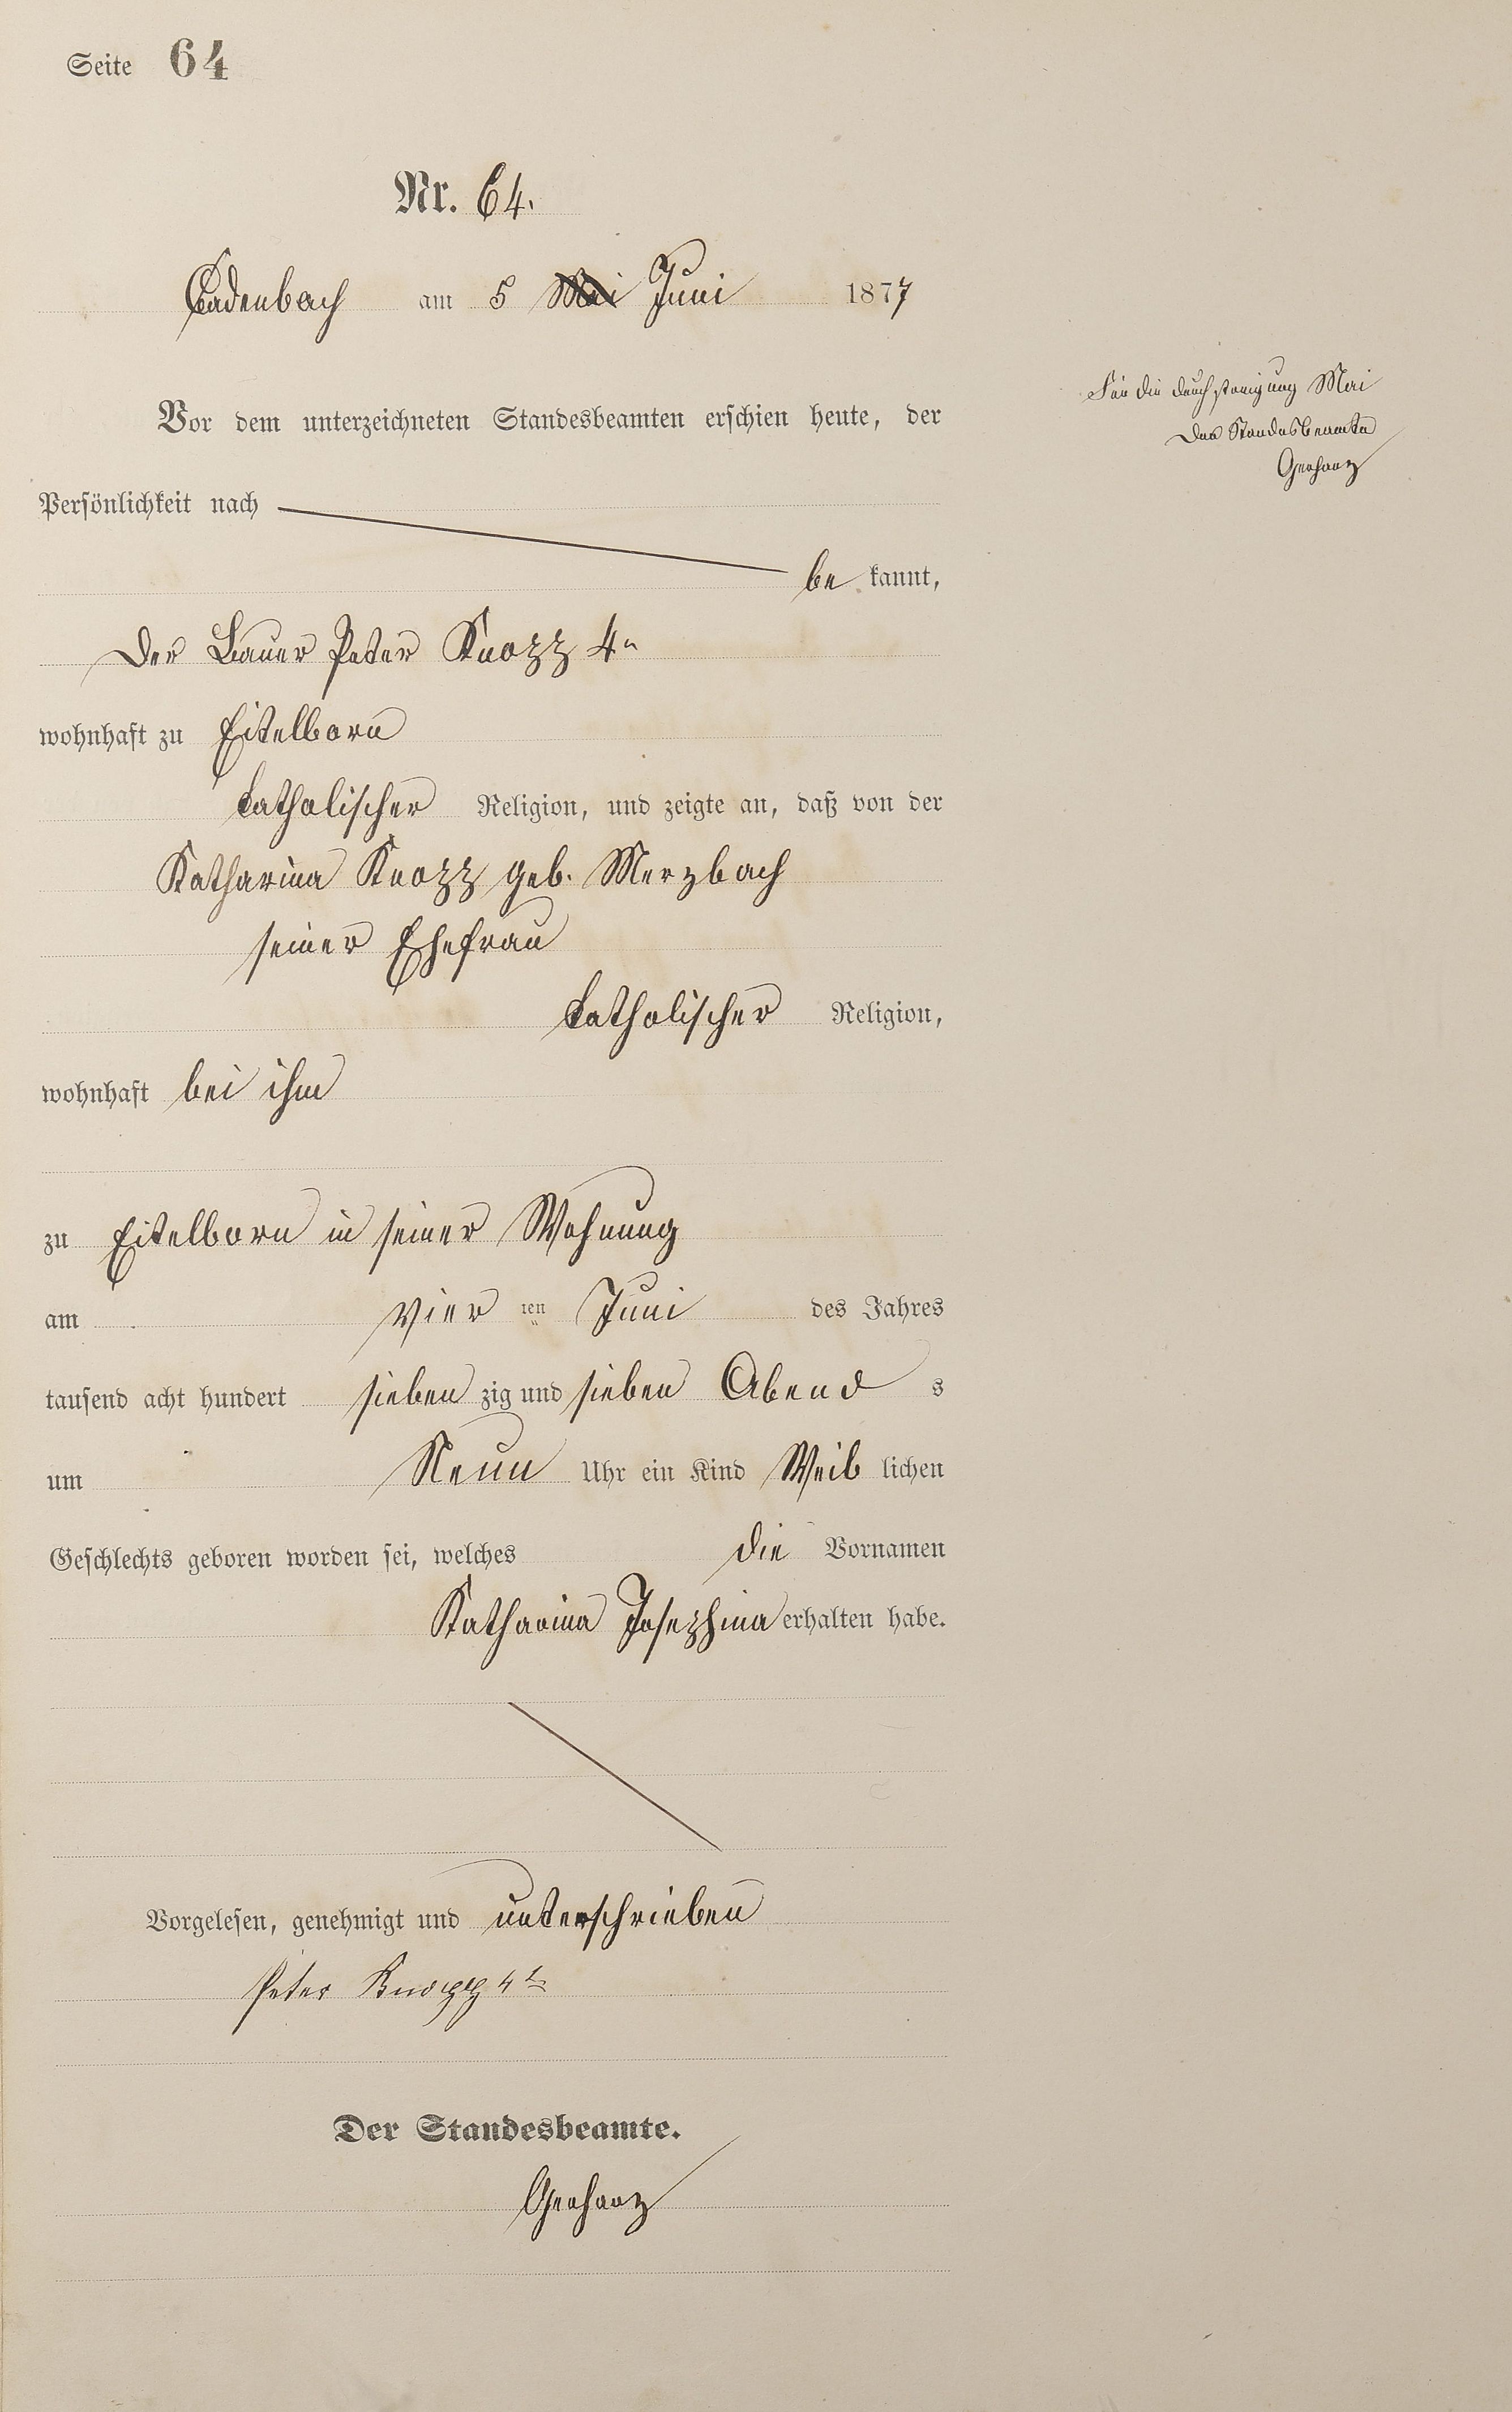 Seite 64
Nr. 64.
Cadenbach am 5 Mai Juni 1877
Für die durchstreigung Mai
Der Standesbeamte
Gerharz
Vor dem unterzeichneten Standesbeamten erschien heute, der
Persönlichkeit nach
be kannt,
Der Bauer Peter Knopp 4r
wohnhaft zu Eitelborn
katholischer Religion, und zeigte an, daß von der
Katharina Knopp geb. Merzbach
seiner Ehefrau
katholischer Religion,
wohnhaft bei ihm
zu Eitelborn in seiner Wohnung
am vier ten Juni des Jahres
tausend acht hundert sieben zig und sieben Abend s
um Neun Uhr ein Kind Weib lichen
Geschlechts geboren worden sei, welches die Vornamen
Katharina Josephina erhalten habe.
Vorgelesen, genehmigt und unterschrieben
Peter Knopp 4t
Der Standesbeamte.
Gerharz